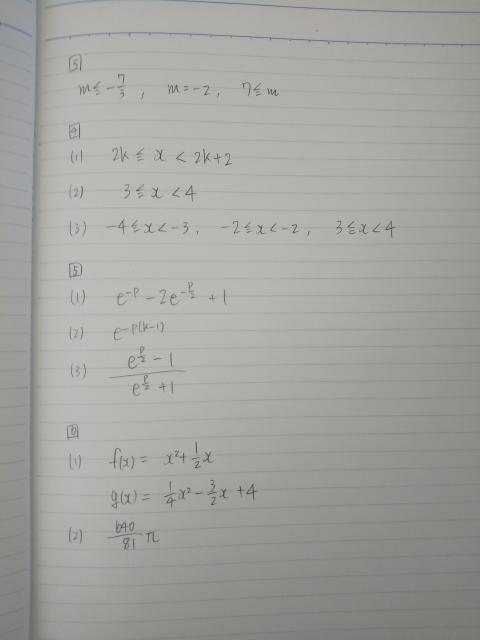 3
m≦-7/3, m=-2, 7≦m
4
(1) 2k≦x<2k+2
(2) 3≦x<4
(3) -4≦x<-3, -2≦x<-2, 3≦x<4
5
(1) e^{-p}-2e^{-p/2}+1
(2) e^{-p(k-1)}
(3) (e^{p/2}-1)/(e^{p/2}+1)
6
(1) f(x)=x²+1/2x
g(x)=1/4x²-3/2x+4
(2) 640/81π